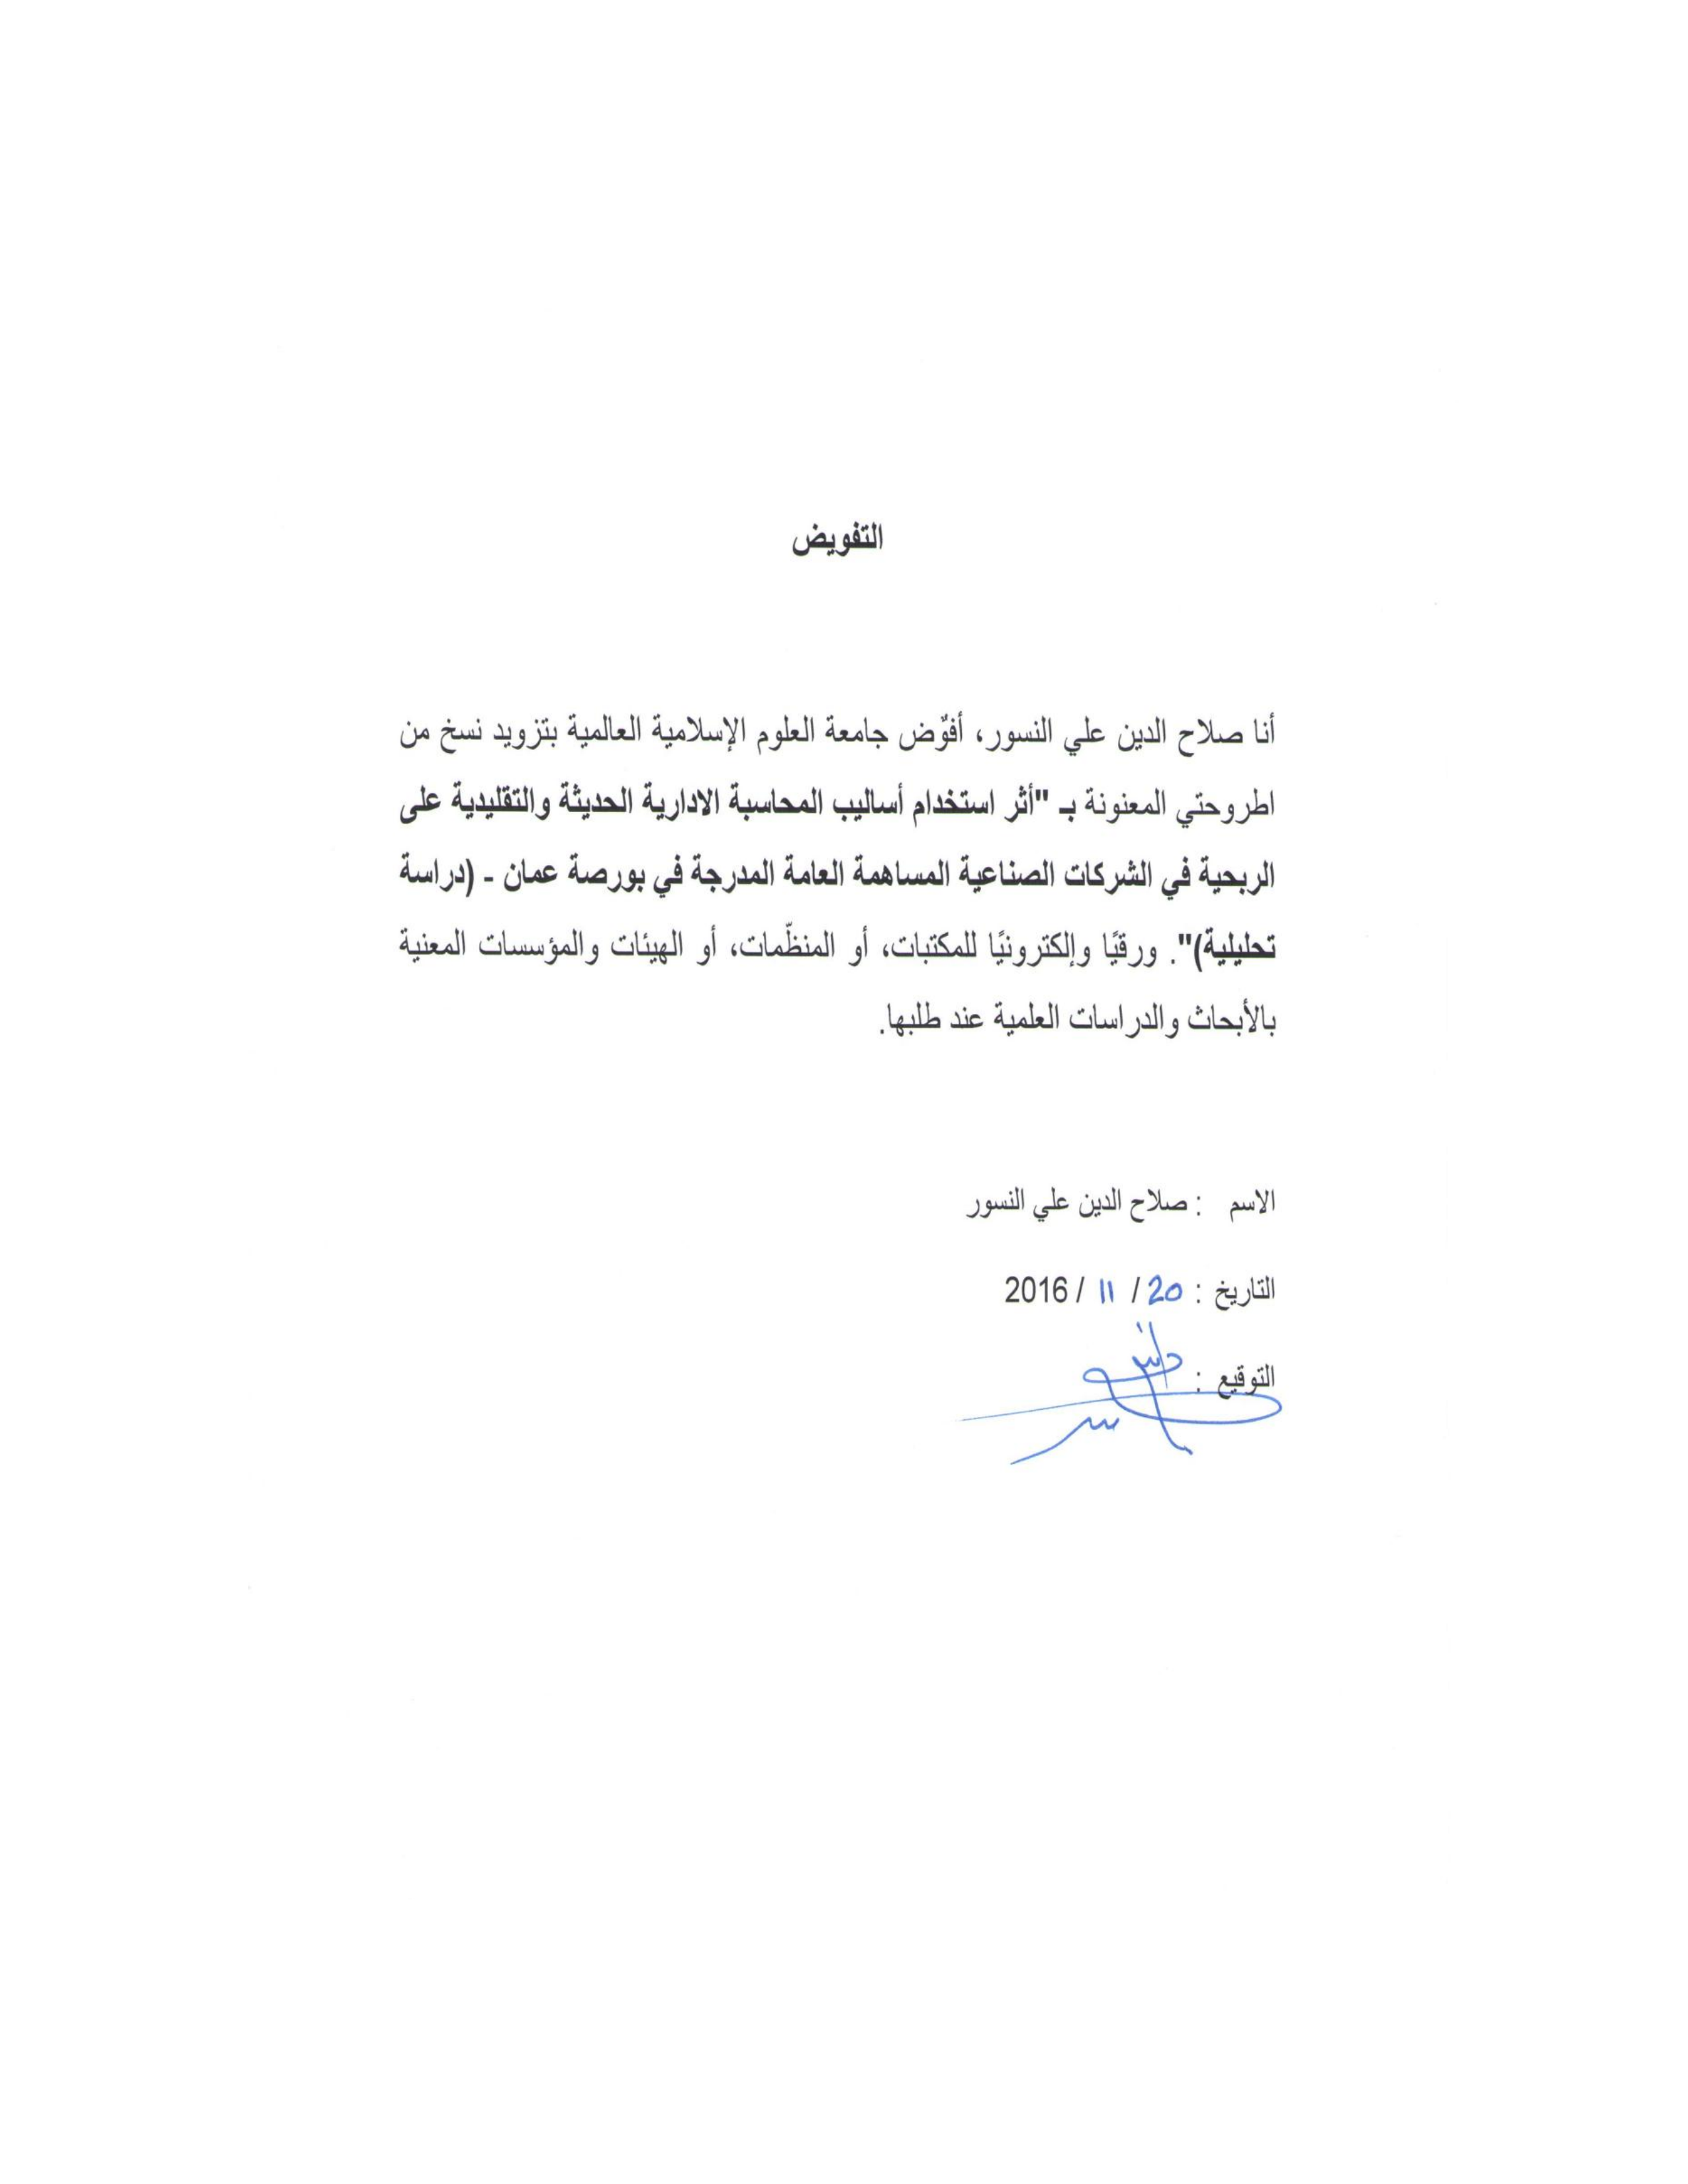 التفويض
أنا صلاح الدين علي النسور، أفوّض جامعة العلوم الإسلامية العالمية بتزويد نسخ من
اطروحتي المعنونة بـ "أثر استخدام أساليب المحاسبة الادارية الحديثة والتقليدية على
الربحية في الشركات الصناعية المساهمة العامة المدرجة في بورصة عمان - (دراسة
تحليلية)". ورقيًا وإلكترونيًا للمكتبات، أو المنظّمات، أو الهيئات والمؤسسات المعنية
بالأبحاث والدراسات العلمية عند طلبها.
الاسم : صلاح الدين علي النسور
التاريخ : 20 / 11 / 2016
التوقيع :